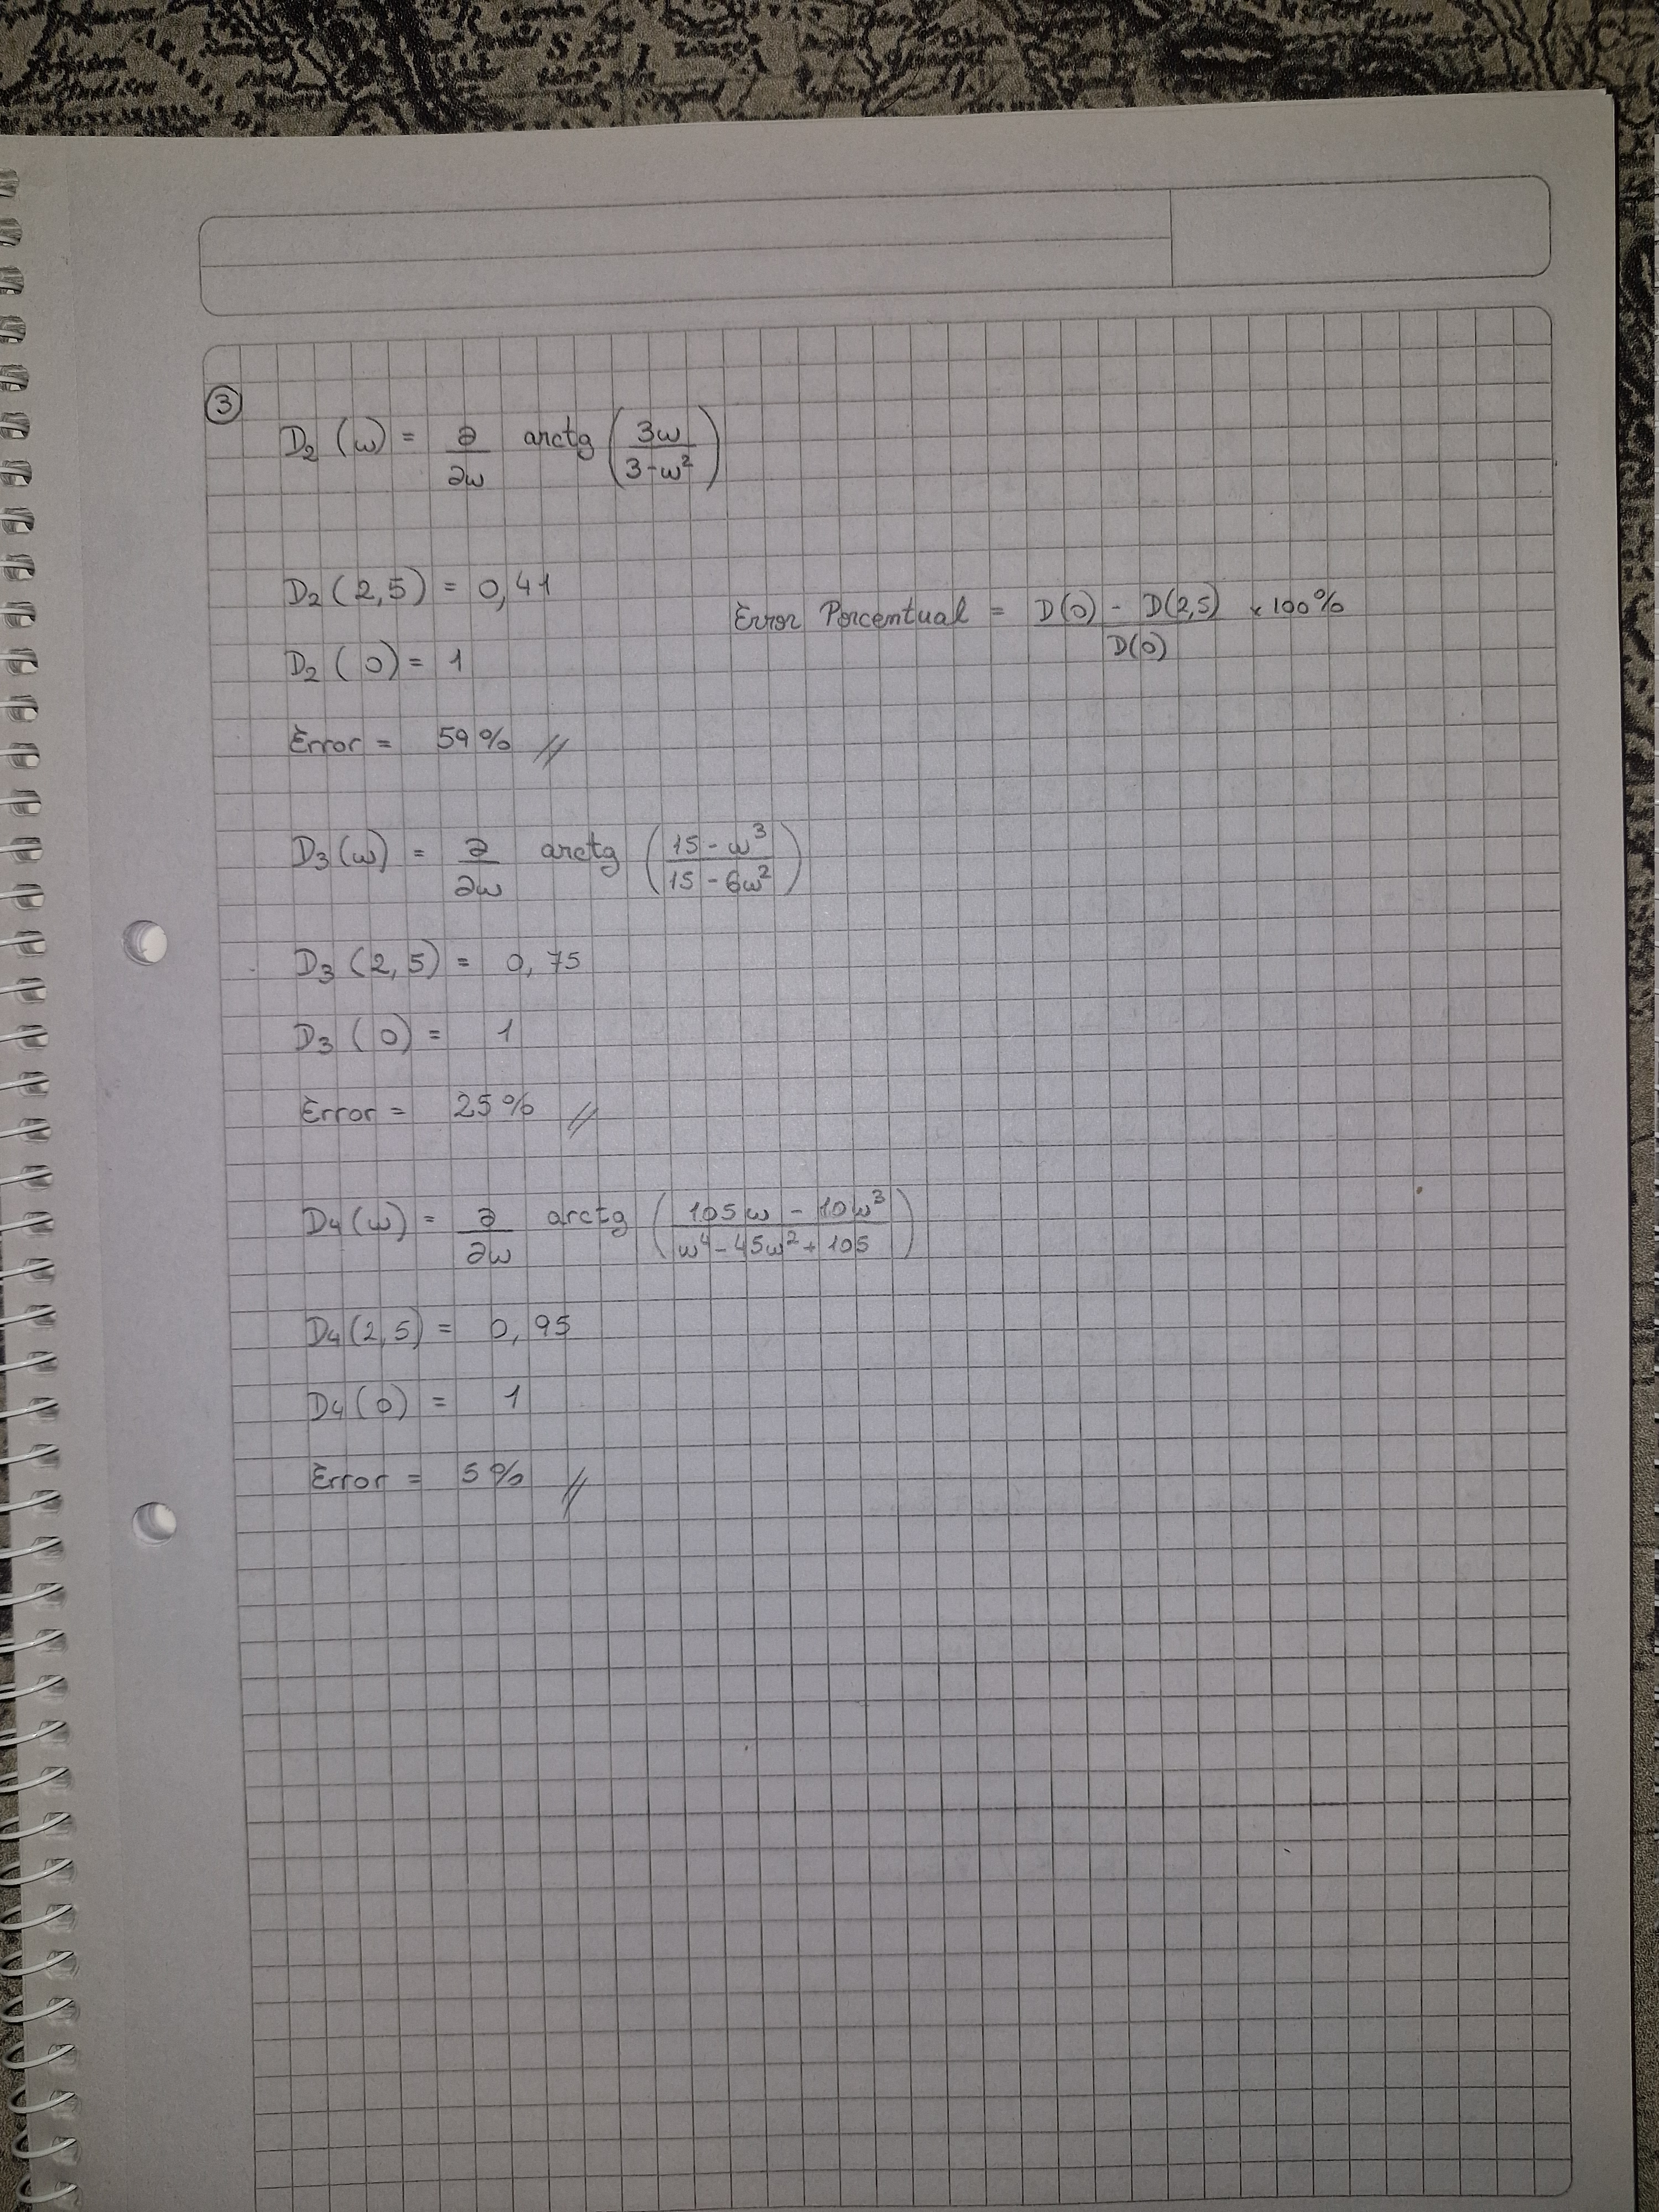 3
D₂(ω) = ∂/∂ω arctg (3ω/(3-ω²))
D₂(2,5) = 0,41
Error Porcentual = (D(0) - D(2,5))/D(0) x 100%
D₂(0) = 1
Error = 59% //
D₃(ω) = ∂/∂ω arctg ((15-ω³)/(15-6ω²))
D₃(2,5) = 0,75
D₃(0) = 1
Error = 25% //
D₄(ω) = ∂/∂ω arctg ((105ω - 10ω³)/(ω⁴-45ω²+105))
D₄(2,5) = 0,95
D₄(0) = 1
Error = 5% //